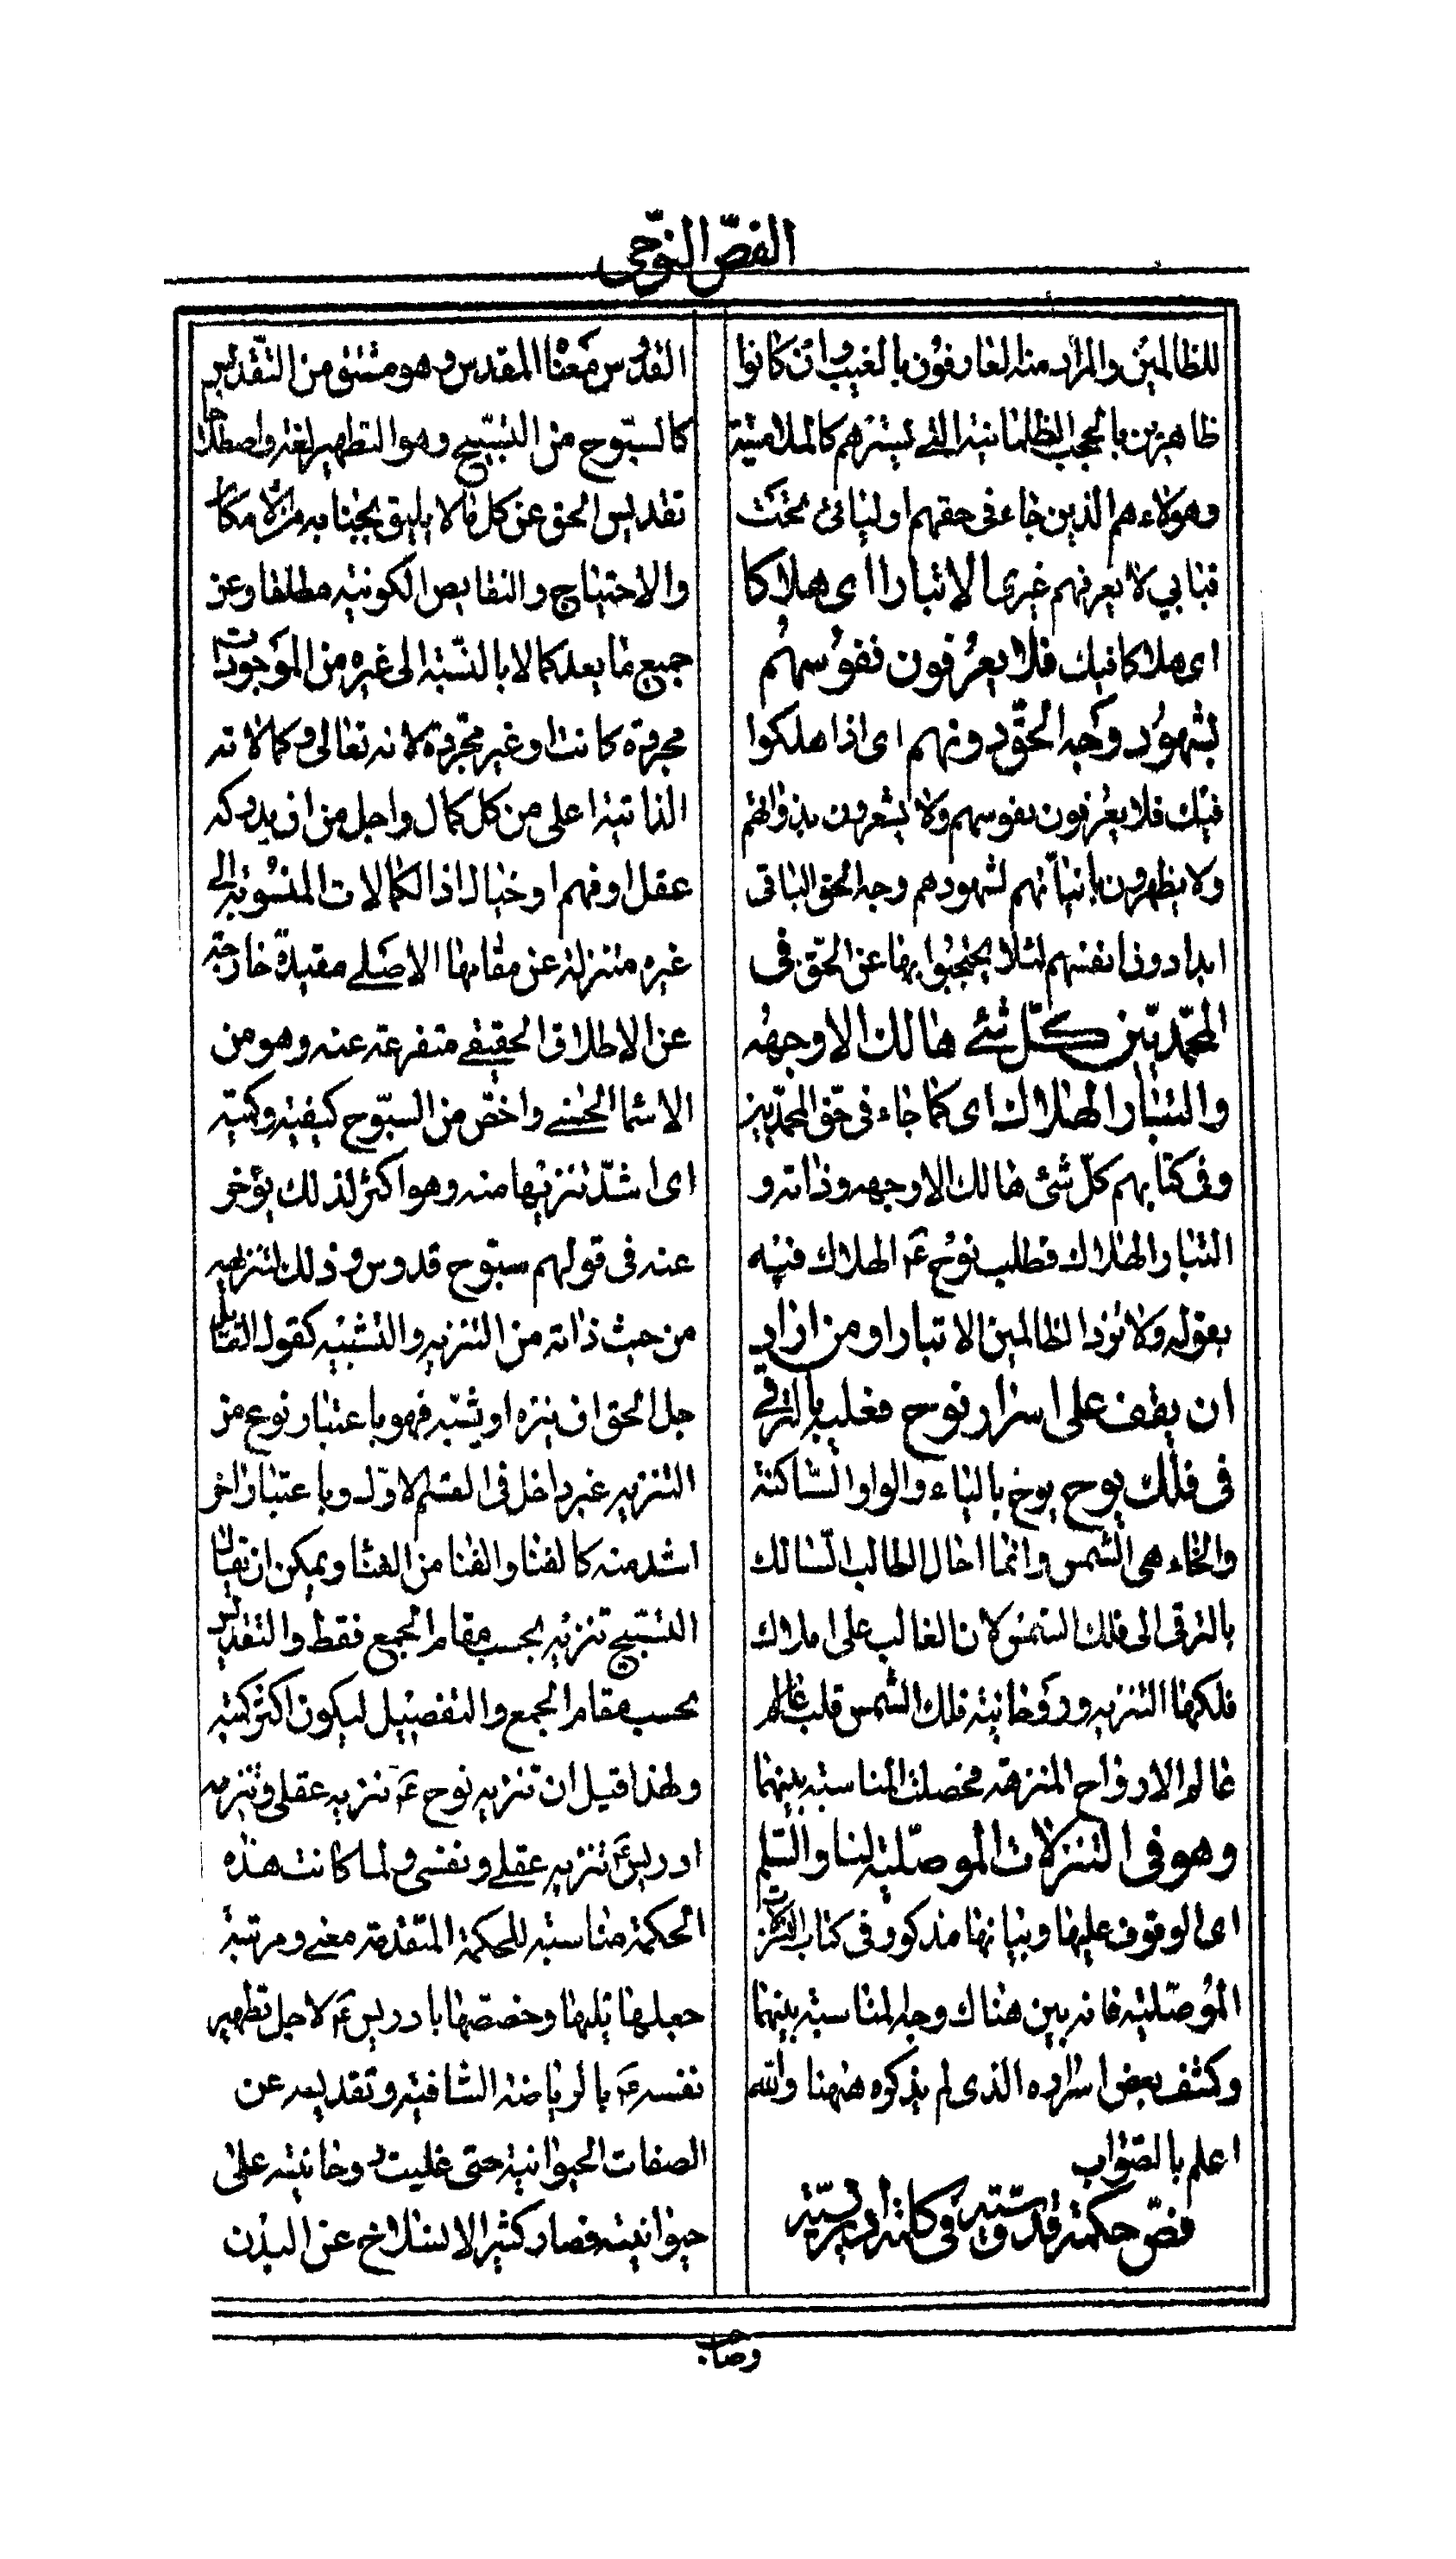 الفصّ النّوحى
للظالمين والمراد منه العارفون بالغيب وان كانوا
ظاهرين بالحجب الظلمانية التى تسترهم كالملامتية
وهولاء هم الذين جاء فى حقهم اوليائى تحت
قبابى لا يعرفهم غيرى الا تبارا اى هلاكا
اى هلاكا فيك فلا يعرفون نفوسهم
لشهود وجه الحقّ دونهم اى اذا هلكوا
فيك فلا يعرفون نفوسهم ولا يشعرون بذواتهم
ولا يظهرون بانيّاتهم لشهودهم وجه الحق الباقى
ابدا دون انفسهم لئلا يحتجبوا بها عن الحقّ فى
المحمّديّين كلّ شئ هالك الا وجهه
والتبار الهلاك اى كما جاء فى حقّ المحمّديين
وفى كتابهم كلّ شئ هالك الا وجهه وذاته و
التبار الهلاك فطلب نوح ع الهلاك فيه
بقوله ولا تزد الظالمين الا تبارا ومن اراد
ان يقف على اسرار نوح فعليه بالترقى
فى فلك يوح يوح بالياء والواو الساكنة
والحاء هى الشمس وانما احال الطالب السّالك
بالترقى الى فلك الشمس لان الغالب على املاك
فلكها التنزيه وروحانية فلك الشمس قلب عالم
عالم الارواح المنزهة فحصلت المناسبة بينهما
وهو فى التنزلات الموصليّة لنا والسّلم
اى الوقوف عليها وبيانها مذكور فى كتاب التنزلات
الموصليّة فانه بين هناك وجه المناسبة بينهما
وكشف بعض اسراره الذى لم يذكره ههنا والله
اعلم بالصواب
فصّ حكمة قدّوسيّة فى كلمة ادريسيّة
القدّوس معناه المقدس وهو مشتق من التّقديس
كالسبّوح من التسبيح وهو التطهير لغة واصطلاحا
تقديس الحق عن كل ما لا يليق بجنابه من الامكان
والاحتياج والنقايص الكونية مطلقا وعن
جميع ما يعد كمالا بالنّسبة الى غيره من الموجودات
مجردة كانت او غير مجرّدة لانه تعالى وكمالاته
الذاتية اعلى من كل كمال واجل من ان يدركه
عقل او فهم او خيال اذ الكمالات المنسوبة الى
غيره متنزلة عن مقامها الاصلى مقيدة خارجة
عن الاطلاق الحقيقى متفرعة عنه وهو من
الاسماء الحسنى واخصّ من السبّوح كيفية وكمية
اى اشدّ تنزيها منه وهو اكثر لذلك يؤخر
عنه فى قولهم سبّوح قدوس وذلك لتنزيهه
من حيث ذاته من التنزيه والتشبيه كقول القائل
جل الحق ان ينزه او يشبّه فهو باعتبار نوع من
التنزيه غير داخل فى القسم الاوّل وباعتبار اخر
اشد منه كالفناء والفناء من الفناء ويمكن ان يقال
التسبيح تنزيه بحسب مقام الجمع فقط والتقديس
بحسب مقام الجمع والتفصيل ليكون اكثر كمية
ولهذا قيل ان تنزيه نوح ع تنزيه عقلى وتنزيه
ادريس ع تنزيه عقلى ونفسى ولما كانت هذه
الحكمة مناسبة للحكمة المتقدمة معنى ومرتبة
جعلها تليها وخصصها بادريس ع لاجل تطهير
نفسه ع بالرياضة الشاقة وتقديسه عن
الصفات الحيوانية حتى غلبت روحانيته على
حيوانيته فصار كثير الانسلاخ عن البدن
وصاحب